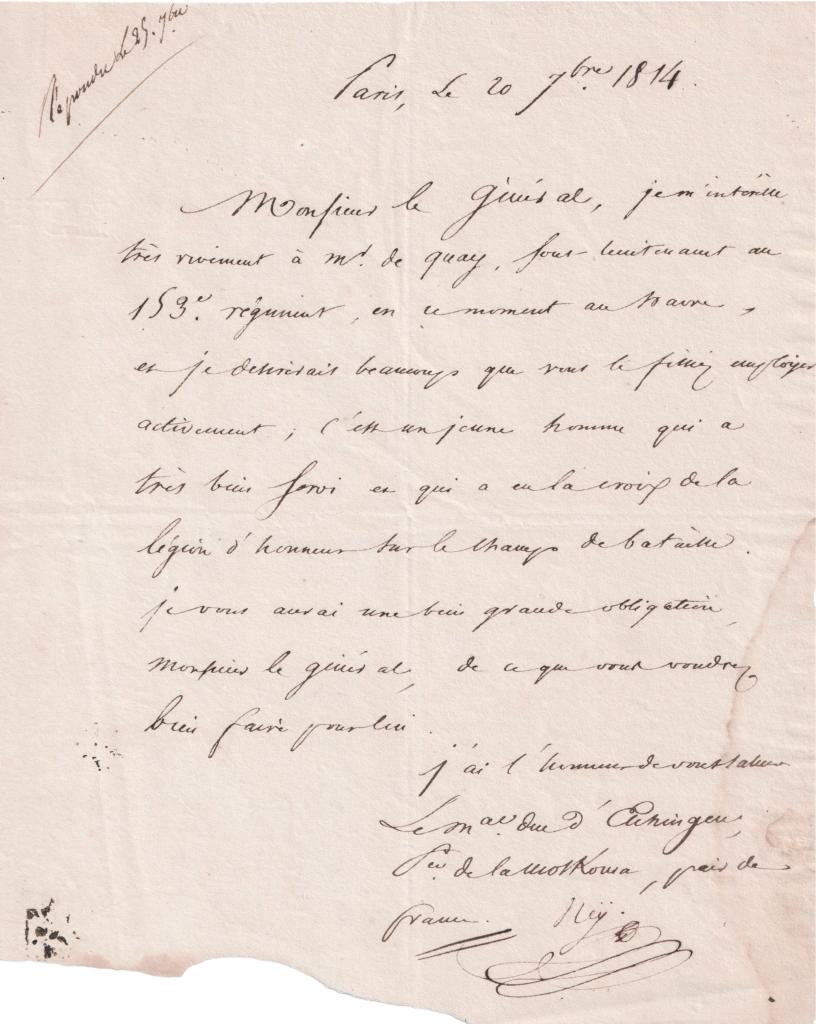 Répondu le 25. 7bre
Paris, Le 20 7bre 1814.
Monsieur le Général, je m'intéresse
très vivement à mr. de quay, sous-lieutenant au
153e. régiment, en ce moment au havre,
et je desirerais beaucoup que vous le fissiez employer
activement; c'est un jeune homme qui a
très bien servi et qui a eu la croix de la
légion d'honneur sur le champ de bataille.
je vous aurai une bien grande obligation,
monsieur le général, de ce que vous voudrez
bien faire pour lui.
j'ai l'honneur de vous saluer
Le mal. duc d'Elchingen,
Pce. de la moskowa, pair de
france. Ney.